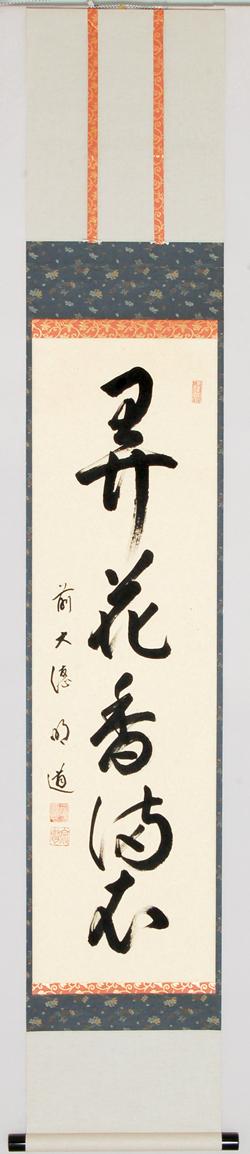 弄花香満衣
前大徳明道